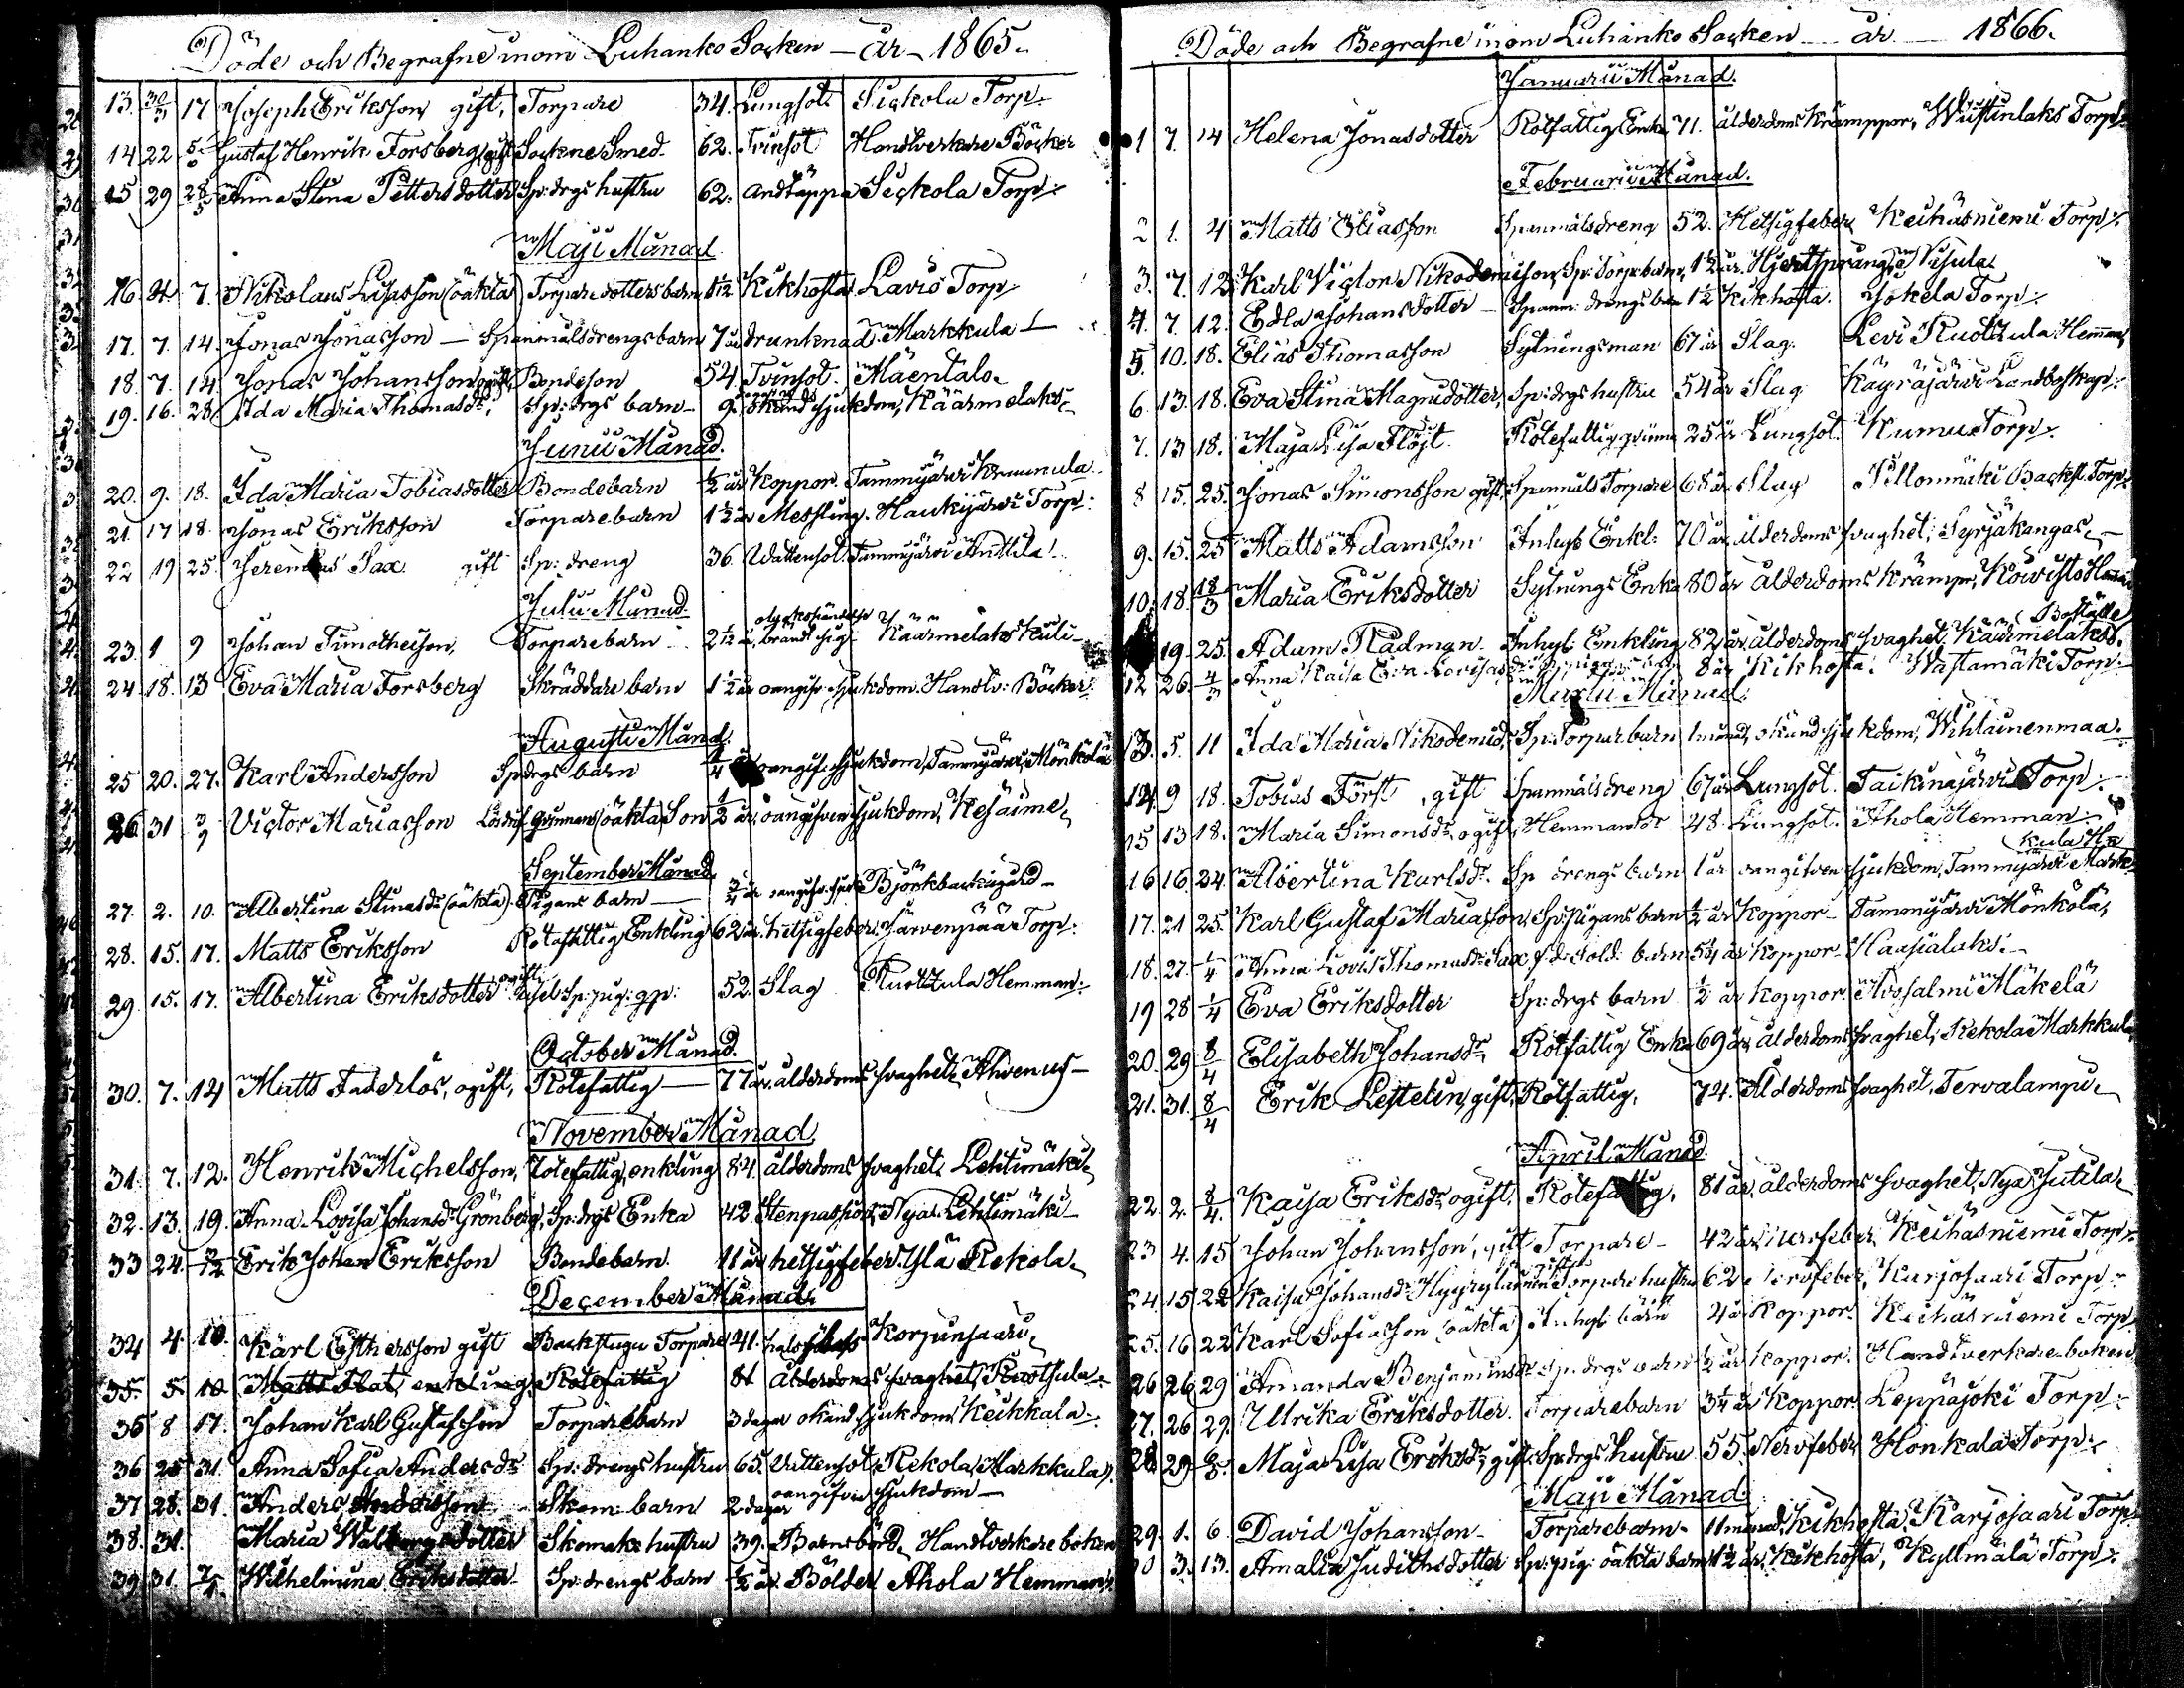 Döde och Begrafne inom Luhanko Socken - år - 1865.
13. 30/3 17 Joseph Eriksson gift, Torpare 34. Lungsot Sickola Torp.
14 22 Gustaf Henrik Forsberg Sockne Smed 62. Tvinsot Handtverkare Böcker
15 29 28/5 Anna Stina Pettersdotter Sp: drgs hustru 62. andtäppa Sickola Torp.
Maji Månad
16 7 Nikolaus Lisasson (oäkta) Torparedottersbarn Kikhosta Lavis Torp.
17. 7. 14. Jonas Jonasson - Spanmålsdrengsbarn 7 år drunknad. Markkula
18. 7. 14 Jonas Johansson Bondeson 54. Tvinsot. Mäentalo
19. 16. 28 Ida Maria Thomasdr, Sp: drgs barn - 9. okänd sjukdom, Käärmelaks
Junii Månad.
20. 9. 18. Ida Maria Tobiasdotter Bondebarn 1/2 år Koppor. Tammijärvi Krunnula
21. 17 18. Jonas Eriksson Torparebarn 1 1/2 år Messling. Haukijärvi Torp:
22 19 25. Jeremias Sax gift Sp: dreng 36 Wattensot. Tammijärvi Anttila
Julii Månad.
23. 1 9 Johan Timotheison, Torparebarn 2 1/12 år, olyckshändelse brändt sig Käärmelaks Kuli
24 18. 13 Eva Maria Forsberg Skräddare barn 1 1/2 år oangifv: sjukdom. Handtv: Böcker.
Augusti Månad.
25 20. 27. Karl Andersson Sp drgs barn oangif: sjukdom, Tammijärvi, Mönkölä
26 31 3/9 Victor Mariasson Lösdrif. qvinnans (oäkta) Son 1/2 år, oangifven sjukdom, Kesäime
September Månad.
27. 2. 10. Albertina Stinasdr (oäkta) Pigans barn - oangifv. sjuk Björkbackagård -
28. 15. 17. Matts Eriksson Rotefattig Enkling 62 år. hetsigfeber. Järvenpää Torp:
29. 15. 17. Albertina Eriksdotter ogift Sp: pig: 52. Slag Ruottula Hemman:
October Månad.
30. 7. 14 Matts Faderlös, ogift, Rotefattig - 77 år. ålderdoms svaghet, Ahvenus -
November Månad.
31. 7. 12. Henrik Michelsson, Rotefattig, enkling 84. ålderdoms svaghet. Lehtimäki
32. 13. 19. Anna Lovisa Johansdr Grönberg, Sp: drgs Enka 42. Stenpassion, Nya Lehtimäki -
33 24. Erik Johan Eriksson Bondebarn. 11 år hetsigfeber. Ylä Rekola.
December Månad.
34 4. 10. Karl Esthersson gift Backstugu Torpare 41. Korpunsaari
35. 5. 10 Matts Flat, enkling, Rotefattig 81 Ålderdoms svaghet, Ruottula
35 8 17. Johan Karl Gustafsson Torparebarn 3 dagar okänd sjukdom Keikkala.
36 25 31. Anna Sofia Andersdr Sp: drengs hustru 65. Vattensot, Rekola, Markkula.
37 28. 31. Anders Andersson Skom: barn 2 dagar oangifven sjukdom -
38. 31. Maria Walborgsdotter Skomak: hustru 39. Barnsbörd, Handtverkare böken
39. 31. 7/1. Wilhelmina Eriksdotter Sp: drengs barn 1/2 år. Bölder Ahola Hemman.
Döde och Begrafne inom Luhanko Socken år 1866.
Januarii Månad.
1 7. 14 Helena Jonasdotter Rotfattig Enka 71. ålderdoms krämppor, Wustinlaks Torp.
Februarii Månad.
2 1. 4 Matts Eliasson Spanmålsdreng 52. Hetsigfeber, Keihäsniemi Torp.
3. 7. 12 Karl Victor Nikodemison, Sp: Torp: barn, 1 1/2 år. Hjertsprång, Nisula
4. 7. 12. Edla Johansdotter - Spanm: drengs barn 1 1/2 Kikhosta. Jokela Torp.
5. 10. 18. Elias Thomasson Sytningsman 67 år Slag. Levi Ruottula Hemman,
6. 13. 18. Eva Stina Magnidotter, Sp: drgs hustru 54 år Slag Käyräjärvi Landboskap.
7. 13 18. Maja Lisa Flöjt. Rotefattig qvinna 25 år Lungsot. Kumu Torp.
8 15. 25. Jonas Simonsson gift, Spanmåls Torpare 68 år Slag Pillonmäki Backst. Torp.
9. 15. 25 Matts Adamsson Inhys Enkl: 70 år ålderdoms svaghet, Syrjäkangas -
10. 18. 18/3 Maria Eriksdotter Sytnings Enka 80 år ålderdoms krämpr, Koivisto Hemman
19. 25. Adam Rådman. Inhys: Enkling 82 år, ålderdoms svaghet, Käärmelaks Boställe.
12 26. 4/3 Anna Kaisa Eva Lovisasdr 8 år Kikhosta. Wastamäki Torp.
Martii Månad.
13. 5. 11 Ida Maria Nikodemidr, Sp: Torpar barn 1 månad, okänd sjukdom, Wihlainenmaa.
14. 9 18. Tobias Först, gift Spanmålsdreng 67 år Lungsot. Taikinajärvi Torp.
15 13 18. Maria Simonsdr, ogift, Hemmansdr 48. Lungsot. Ahola Hemman.
16 16. 24 Albertina Karlsdr. Sp drengs barn 1 år oangifven sjukdom, Tammijärvi Markkula Hn
17. 21 25. Karl Gustaf Mariasson, Sp: Pigans barn 1/2 år Koppor - Tammijärvi Mönkölä,
18. 27. 1/4 Anna Lovis Thomasdr Sax, f.d. Sold: barn 5 1/4 år koppor - Haasialaks: -
19 28 1/4 Eva Eriksdotter Sp: drgs barn 1/2 år koppor. Avosalmi Mäkelä
20. 29. 8/4 Elisabeth Johansdr, Rotfattig Enka 69 år, ålderdoms svaghet, Rekola Markkula,
21. 31. 8/4 Erik Lettelin, gift, Rotfattig, 74. Ålderdoms svaghet, Tervalampi
April Månad.
22. 2. 8/4. Kaisa Eriksdr, ogift. Rotefattig, 81 år, ålderdoms svaghet, Nya Jutila
23 4. 15 Johan Johansson, gift Torpare - 42 år, nervfeber, Keihäsniemi Torp.
24. 15 22 Kaisa Johansdr Hyyryläinen gift Torpare hustru 62 nervfeber, Karjosaari Torp.
25. 16 22 Karl Sofiasson (oäkta) Inhys barn 4 år Koppor. Keihäsniemi Torp.
26 26 29 Amanda Benjaminsdr Sp: drgs barn 1/2 år Koppor. Handtverkare boken
27. 26 29. Ulrika Eriksdotter. Torparebarn 3 1/4 år Koppor Leppäjoki Torp.
28 29 6/5. Maja Lisa Eriksdr, gift, Sp: drgs Hustru 55. Nervfeber Honkala Torp.
Maji Månad.
29. 1. 6. David Johansson - Torparebarn - 11 månad, kikhosta, Karjosaari Torp.
30 3. 13. Amalia Judithsdotter Sp: pig: oäkta barn 1 1/2 år, Kikhosta, Kyllmälä Torp.